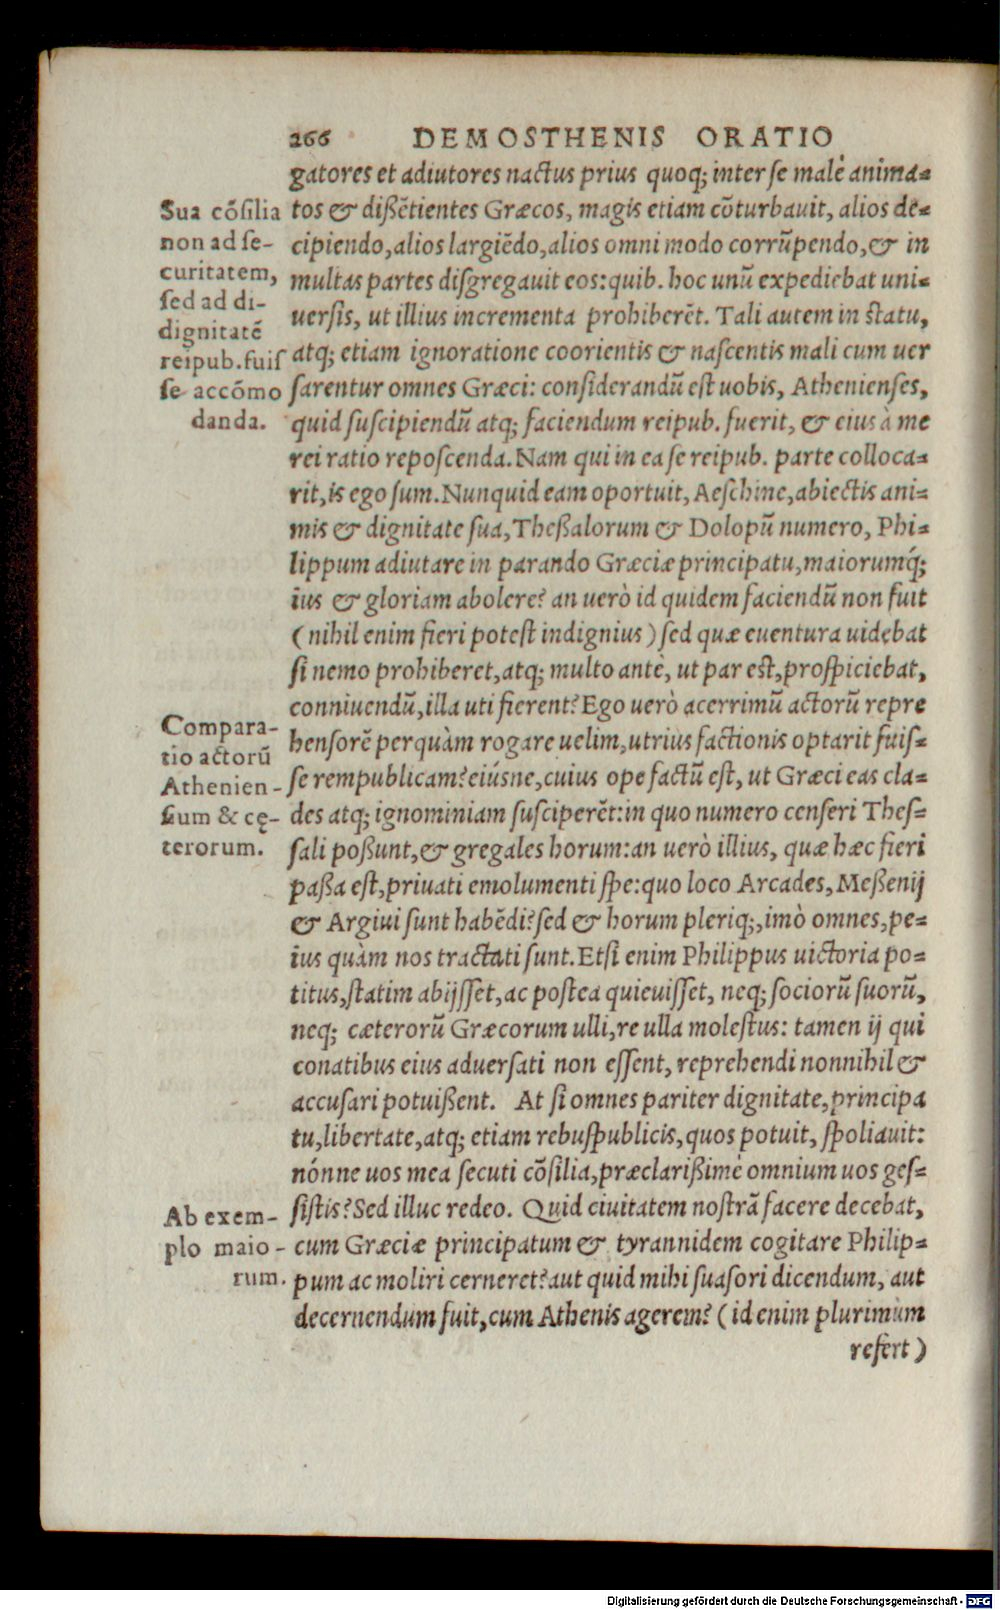 266 DEMOSTHENIS ORATIO
gatores et adiutores nactus prius quoq; inter se malè anima=
tos & dißētientes Græcos, magis etiam cōturbauit, alios de=
cipiendo, alios largiēdo, alios omni modo corrūpendo, & in
multas partes disgregauit eos: quib. hoc unū expediebat uni=
uersis, ut illius incrementa prohiberēt. Tali autem in statu,
atq; etiam ignoratione coorientis & nascentis mali cum uer
sarentur omnes Græci: considerandū est uobis, Athenienses,
quid suscipiendū atq; faciendum reipub. fuerit, & eius à me
rei ratio reposcenda. Nam qui in ea se reipub. parte colloca=
rit, is ego sum. Nunquid eam oportuit, Aeschine, abiectis ani=
mis & dignitate sua, Theßalorum & Dolopū numero, Phi=
lippum adiutare in parando Græciæ principatu, maiorumq́;
ius & gloriam abolere? an uerò id quidem faciendū non fuit
(nihil enim fieri potest indignius) sed quæ euentura uidebat
si nemo prohiberet, atq; multo antè, ut par est, prospiciebat,
conniuendū, illa uti fierent? Ego uerò acerrimū actorū repre
hensorē perquàm rogare uelim, utrius factionis optarit fuis=
se rempublicam? eiúsne, cuius ope factū est, ut Græci eas cla=
des atq; ignominiam susciperēt: in quo numero censeri Thes=
sali poßunt, & gregales horum: an uerò illius, quæ hæc fieri
paßa est, priuati emolumenti spe: quo loco Arcades, Meßenij
& Argiui sunt habēdi? sed & horum pleriq;, imò omnes, pe=
ius quàm nos tractati sunt. Etsi enim Philippus uictoria po=
titus, statim abijsset, ac postea quieuisset, neq; sociorū suorū,
neq; cæterorū Græcorum ulli, re ulla molestus: tamen ij qui
conatibus eius aduersati non essent, reprehendi nonnihil &
accusari potuißent. At si omnes pariter dignitate, principa
tu, libertate, atq; etiam rebuspublicis, quos potuit, spoliauit:
nónne uos mea secuti cōsilia, præclarißimè omnium uos ges=
sistis? Sed illuc redeo. Quid ciuitatem nostrā facere decebat,
cum Græciæ principatum & tyrannidem cogitare Philip=
pum ac moliri cerneret? aut quid mihi suasori dicendum, aut
decernendum fuit, cum Athenis agerem? (id enim plurimùm
refert)
Sua cōsilia
non ad se-
curitatem,
sed ad di-
dignitatē
reipub. fuis
se accōmo
danda.
Compara-
tio actorū
Athenien-
sium & cę-
terorum.
Ab exem-
plo maio-
rum.
Digitalisierung gefördert durch die Deutsche Forschungsgemeinschaft - DFG